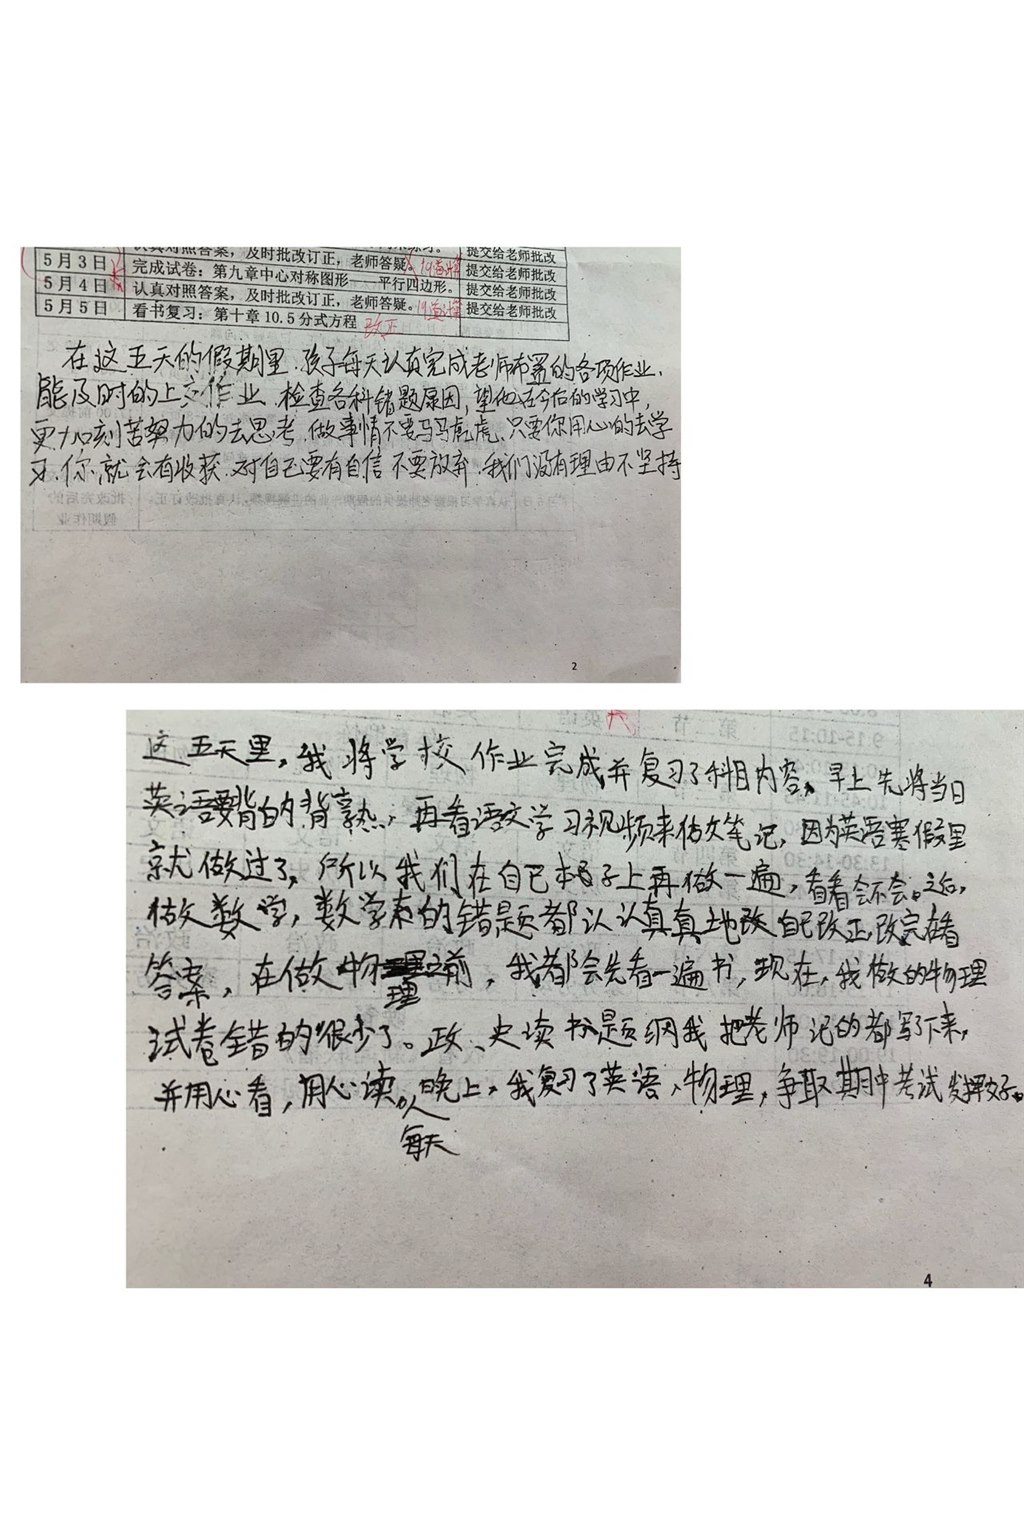 认真对照答案，及时批改订正，老师答疑。
提交给老师批改
5月3日
完成试卷：第九章中心对称图形——平行四边形。
提交给老师批改
5月4日
认真对照答案，及时批改订正，老师答疑。
提交给老师批改
5月5日
看书复习：第十章10.5分式方程
改正
提交给老师批改
在这五天的假期里，孩子每天认真完成老师布置的各项作业，
能及时的上交作业，检查各科错题原因，望他在今后的学习中，
更加刻苦努力的去思考，做事情不要马马虎虎，只要你用心的去学
习，你就会有收获，对自己要有自信，不要放弃，我们没有理由不坚持
2
这五天里，我将学校作业完成并复习了科目内容。早上先将当日
英语要背的背熟，再看语文学习视频来做文笔记，因为英语寒假里
就做过了，所以我们在自己本子上再做一遍，看看会不会。之后，
做数学，数学来的错题都认认真真地改自己改正改完在看
答案，在做物理之前，我都会先看一遍书，现在，我做的物理
试卷错的很少了。政、史读书题纲我把老师记的都写下来，
并用心看，用心读。晚上，我复习了英语、物理，争取期中考试发挥好。
每天
4